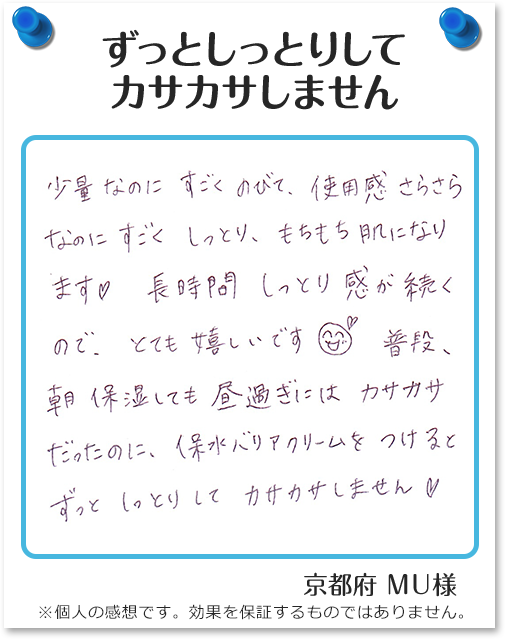 ずっとしっとりして
カサカサしません
少量なのに すごく のびて、使用感 さらさら
なのに すごく しっとり、もちもち 肌になり
ます♡ 長時間 しっとり 感が 続く
ので、とても 嬉しいです 普段、
朝 保湿しても 昼過ぎには カサカサ
だったのに、保水バリアクリームを つけると
ずっと しっとり して カサカサしません♡
京都府 MU様
※個人の感想です。効果を保証するものではありません。